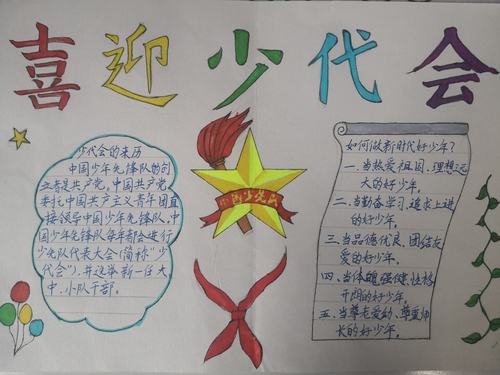 喜迎少代会
少代会的来历
中国少年先锋队的创
立者是共产党。中国共产党
委托共产主义青年团直
接领导中国少年先锋队、中
国少年先锋队每年都会进行
少先队代表大会(简称"少
代会"),并选举新一任大
中、小队干部。
中国少先队
如何做新时代好少年?
一、当热爱祖国、理想远
大的好少年。
二、当勤奋学习、追求上进
的好少年。
三、当品德优良、团结友
爱的好少年。
四、当体魄强健、性格
开朗的好少年。
五、当尊老爱幼、尊重师
长的好少年。